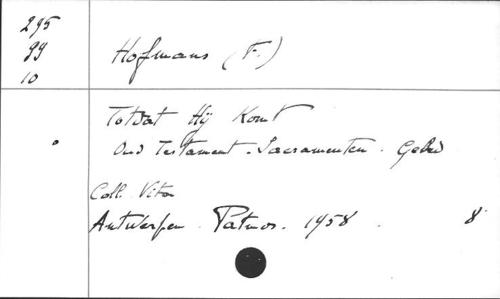 295
99
10
Hofmans (F.)
Totdat Hij Komt
Oud Testament. Sacramenten. Gebed
Coll. Vita
Antwerpen. Patmos. 1958. 8°